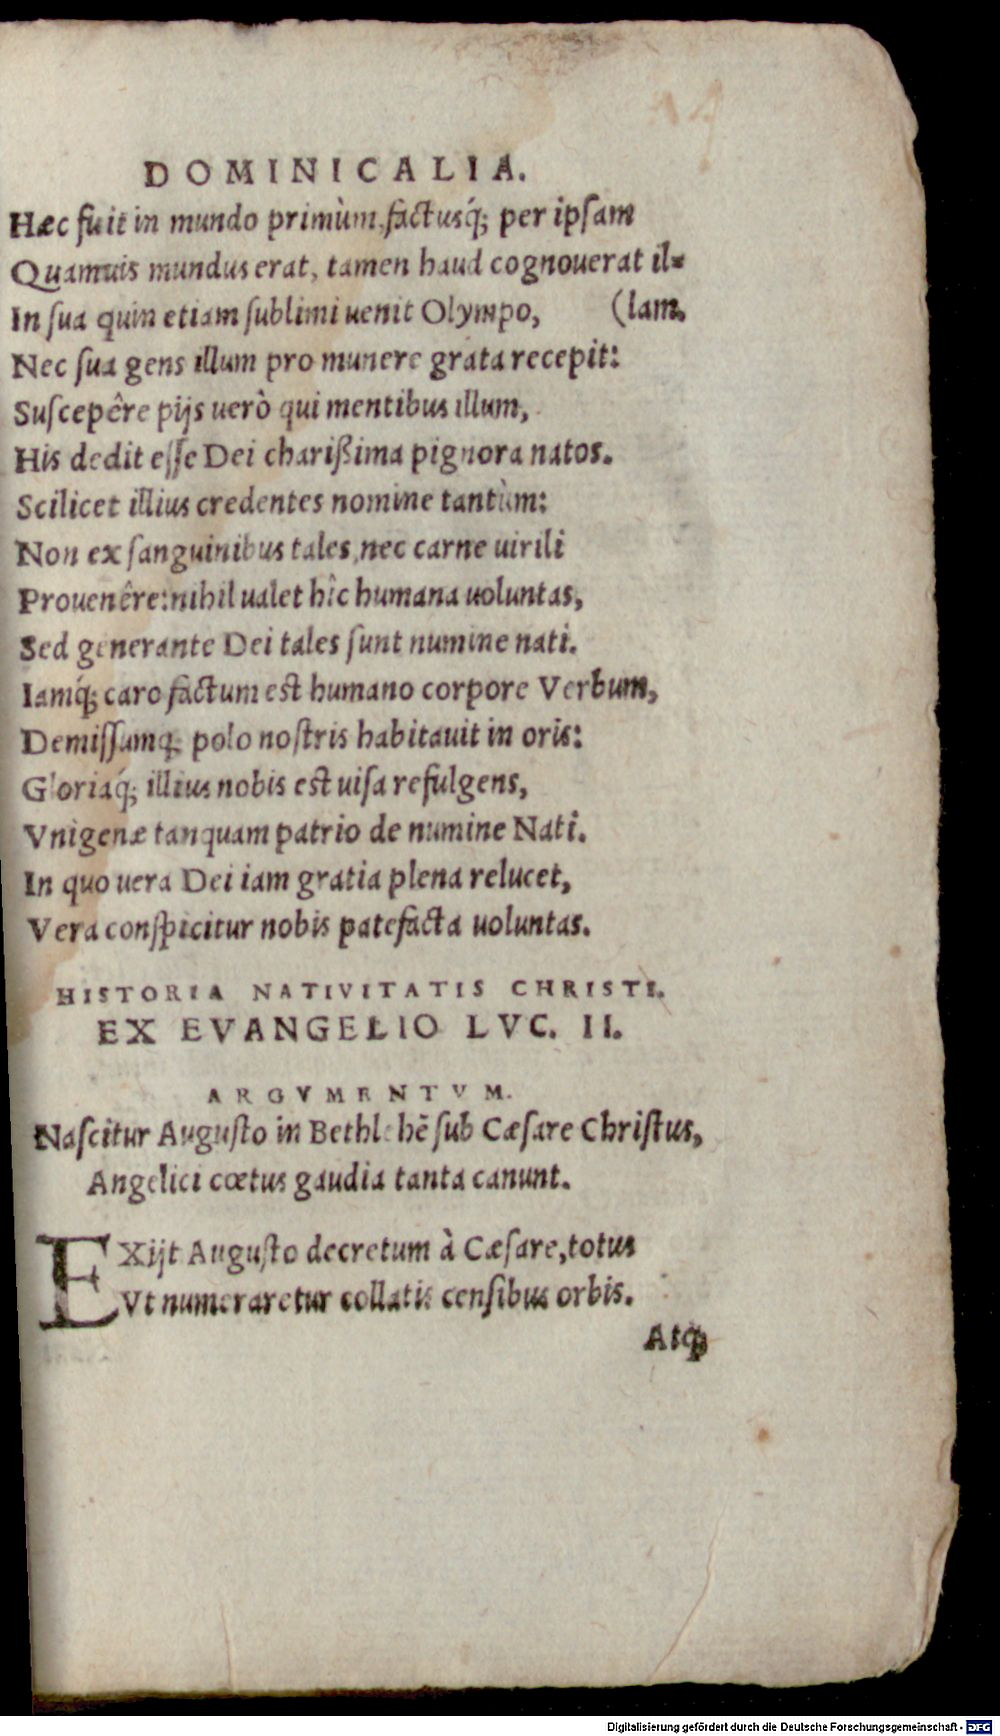 DOMINICALIA.
Hæc fuit in mundo primùm, factusq́; per ipsam
Quamuis mundus erat, tamen haud cognouerat il-
In sua quin etiam sublimi uenit Olympo, (lam.
Nec sua gens illum pro munere grata recepit:
Suscepêre pijs uerò qui mentibus illum,
His dedit esse Dei charißima pignora natos.
Scilicet illius credentes nomine tantùm:
Non ex sanguinibus tales, nec carne uirili
Prouenêre: nihil ualet hîc humana uoluntas,
Sed generante Dei tales sunt numine nati.
Iamq́; caro factum est humano corpore Verbum,
Demissumq; polo nostris habitauit in oris:
Gloriaq́; illius nobis est uisa refulgens,
Vnigenæ tanquam patrio de numine Nati.
In quo uera Dei iam gratia plena relucet,
Vera conspicitur nobis patefacta uoluntas.
HISTORIA NATIVITATIS CHRISTI.
EX EVANGELIO LVC. II.
ARGVMENTVM.
Nascitur Augusto in Bethlehẽ sub Cæsare Christus,
Angelici cœtus gaudia tanta canunt.
EXijt Augusto decretum à Cæsare, totus
Vt numeraretur collatis censibus orbis.
Atq;
Digitalisierung gefördert durch die Deutsche Forschungsgemeinschaft - DFG